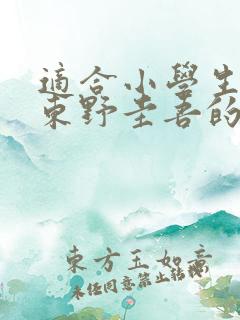 適合小學生
東野圭吾的
東方玉如意
未經同意禁止轉載